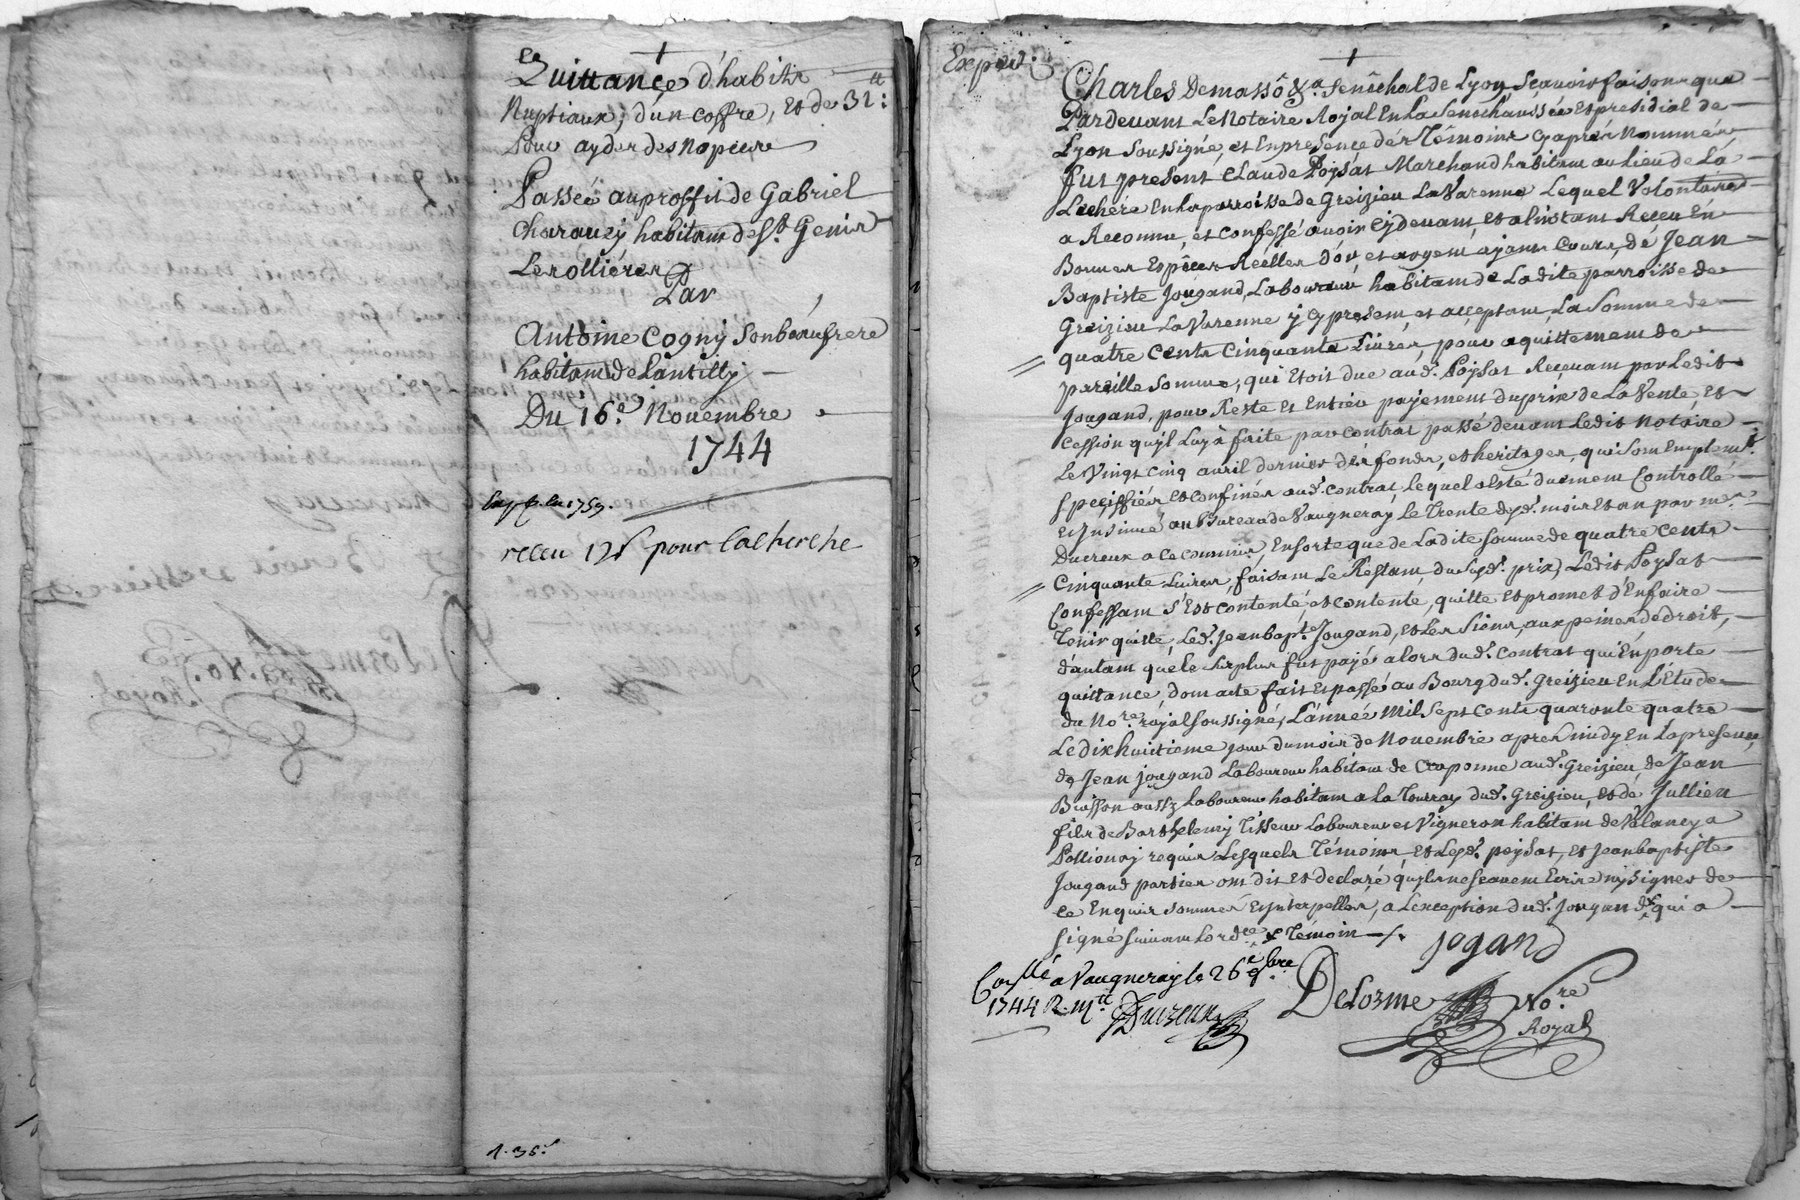 Quittance d'habits
Nuptiaux, d'un coffre, et de 31 ₶:
Pour ayder des Nopces
Passée au proffit de Gabriel
Charavey habitant de St. Genis
Les ollières
Par
Antoine Cogny son beaufrere
habitant de Lantilly
Du 16e. Novembre
1744
Exp. en 1759.
receu 12s pour la cherche
1.35.s
Exped.
Charles Demasso &a. Senêchal de Lyon, Sçavoir faisons que
Pardevant Le Notaire Royal En La Senechaussée et presidial de
Lyon Soussigné, et En presence des Témoins cy aprés Nommés
fut present Claude Poysat Marchand habitant au Lieu de La
Lechére En la parroisse de Greizieu La Varenne Lequel Volontaire
a Reconnu, et confessé avoir Cy devant, et a linstant Receu En
Bonnes Espêces Reelles d'or et argent ayant Cours, de Jean
Baptiste Jougand, Laboureur habitant de Ladite parroisse de
Greizieu La Varenne y cy present et acceptant, La Somme de
quatre Cents Cinquante Livres, pour aquittement de
pareille Somme, qui Etoit due aud. Poysat Recevant par Ledit
Jougand, pour Reste et Entier payement du prix de La Vente, et
Cession qu'jl Luy à faite par contrat passé devant Ledit Notaire
Le Vingt cinq avril dernier des fonds, et heritages, qui Sont Emplemt.
Speciffiés et confinés aud. contrat Lequel a Esté duement Controllé
et Insinué au Bureau de Vaugneray Le Trente desd. mois et an par me.
Ducreux a ce commis, En sorte que de Ladite Somme de quatre Cents
Cinquante Livres, faisant Le Restant du Susd. prix, Ledit Poysat
Confessant S'Est contenté, et contente, quitte et promet d'En faire
Tenir quitte, Led. Jean bapte. Jougand, et Les Siens, aux peines de droit,
d'autant que le Surplus fut payé alors dud. Contrat qui En porte
quittance, dont acte fait et passé au Bourg dud. Greizieu En L'Etude
du Nore. royal Soussigné, L'année Mil Sept Cents quarante quatre
Le dix huitieme jour du mois de Novembre apres midy En La presence,
de Jean Jougand Laboureur habitant de Craponne aud. Greizieu, de Jean
Buisson aussy Laboureur habitant a la Tourray dud. Greizieu, et de Jullien
fils de Barthelemy Tisseur Laboureur et Vigneron habitant de Valancy a
Pollionay requis Lesquels Témoins, et Lesd. poysat, et Jean baptiste
Jougand parties ont dit et declaré qu'jls ne Sçavent Ecrire ny Signer de
ce Enquis Sommés et Interpellés, a L'exception dud. Jougand x qui a
Signé Suivant Lordce. x Témoin
jogand
Conllé a Vaugneray le 26e 9bre
1744 R. Ducreux
Delorme No.re
Royal